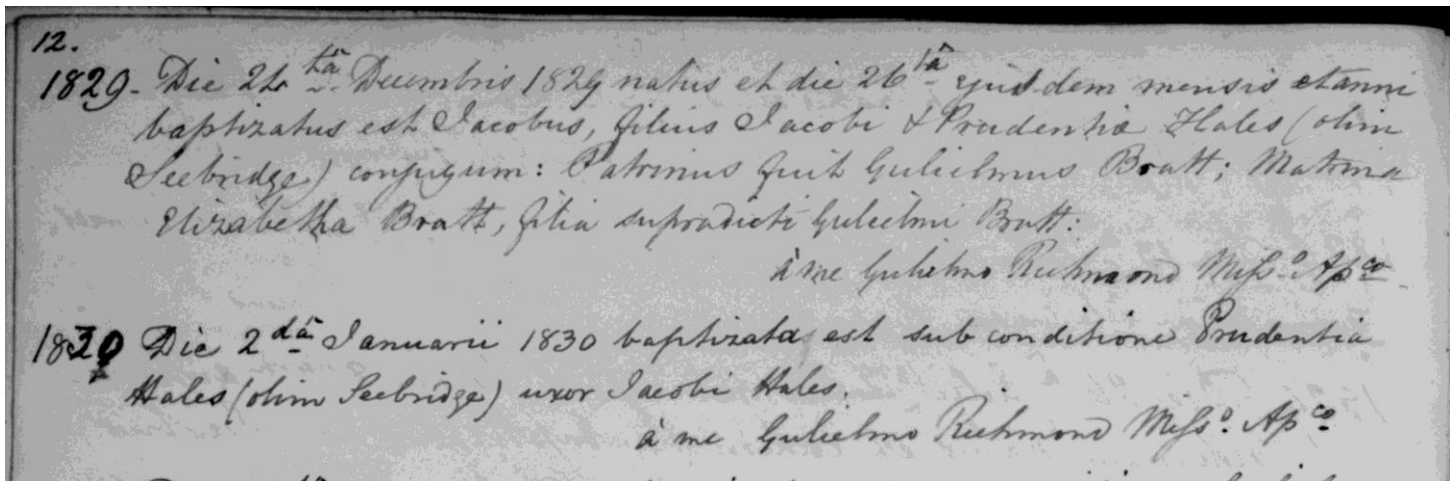 12.
1829. Die 24tâ Decembris 1829 natus et die 26tâ ejusdem mensis et anni
baptizatus est Jacobus, filius Jacobi & Prudentiæ Hales (olim
Seebridge) conjugum: Patrinus fuit Gulielmus Bratt; Matrina
Elizabetha Bratt, filia supradicti Gulielmi Bratt.
à me Gulielmo Richmond Misso. Apco
1830 Die 2dâ Januarii 1830 baptizata est sub conditione Prudentia
Hales (olim Seebridge) uxor Jacobi Hales.
à me Gulielmo Richmond Misso. Apco